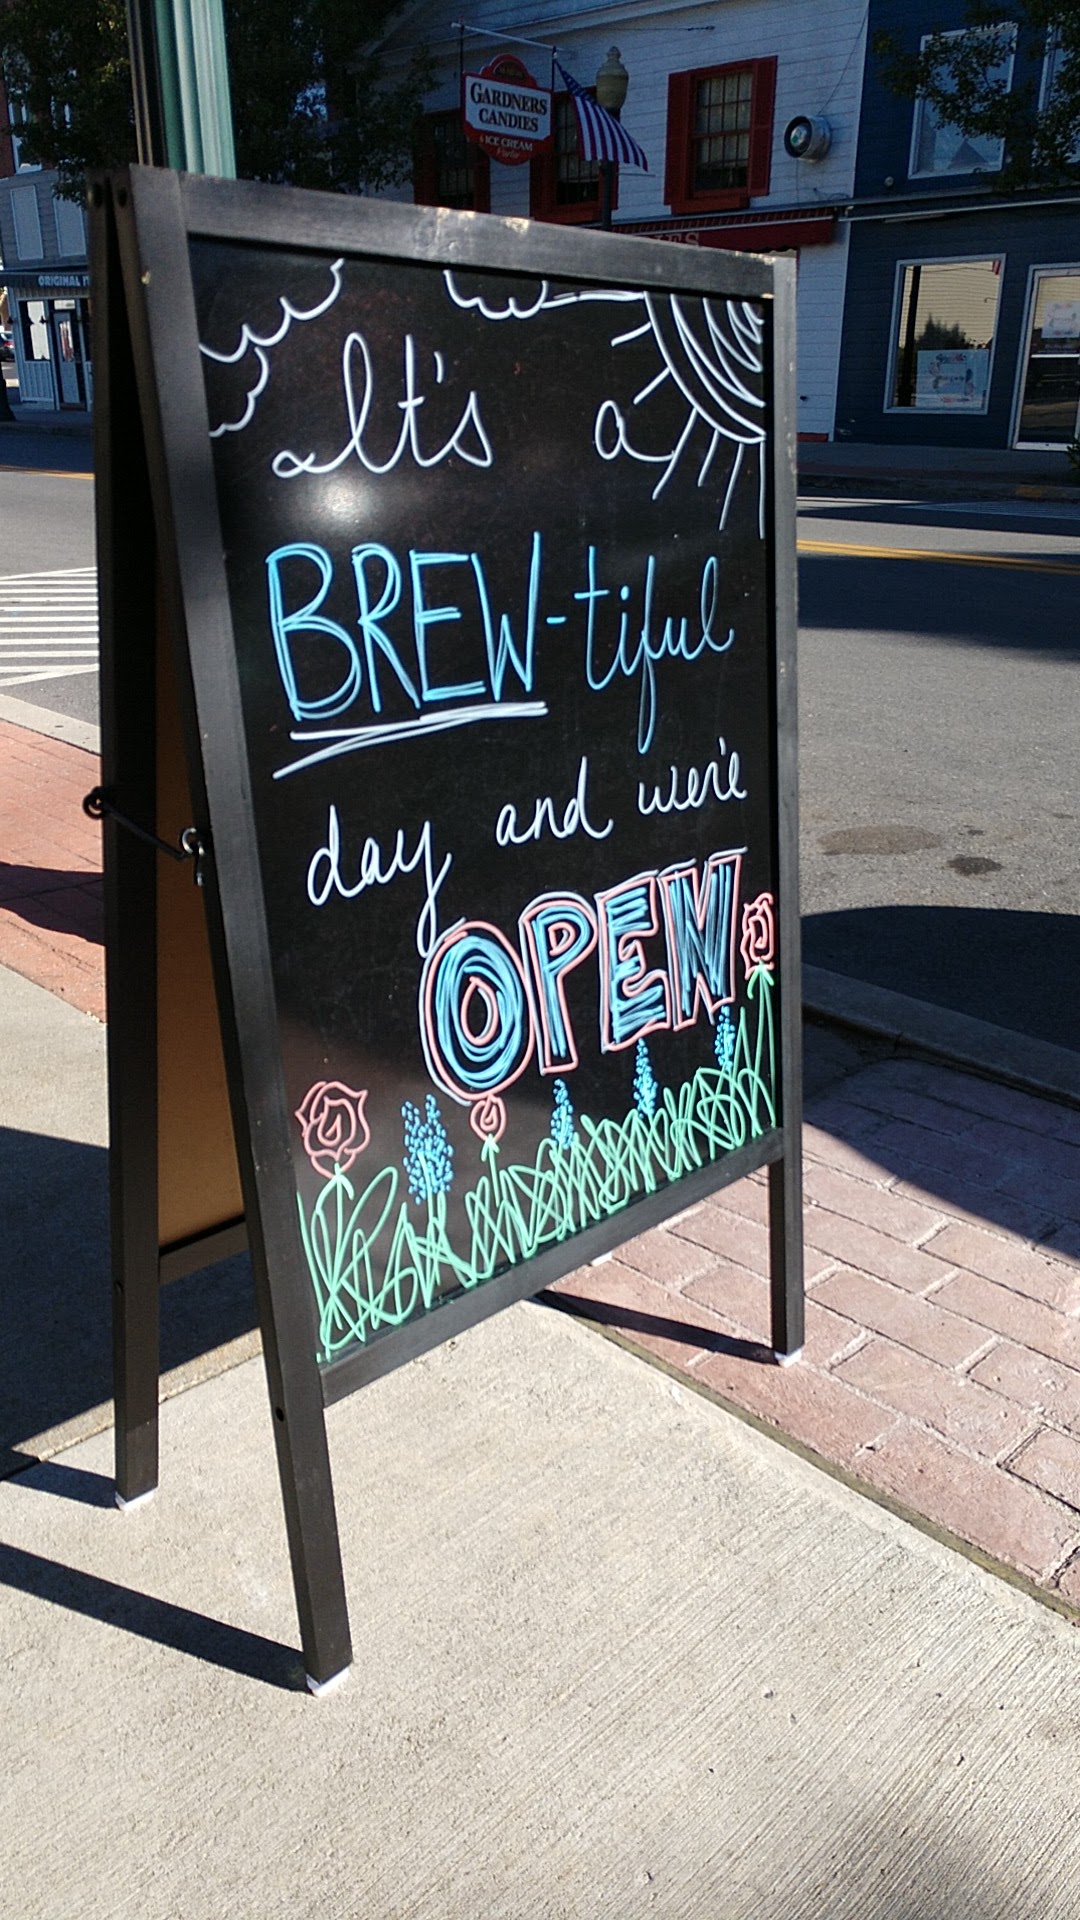 GARDNERS
CANDIES
ICE CREAM
Parlor
ORIGINAL
It's a
BREW-tiful
day and we're
OPEN